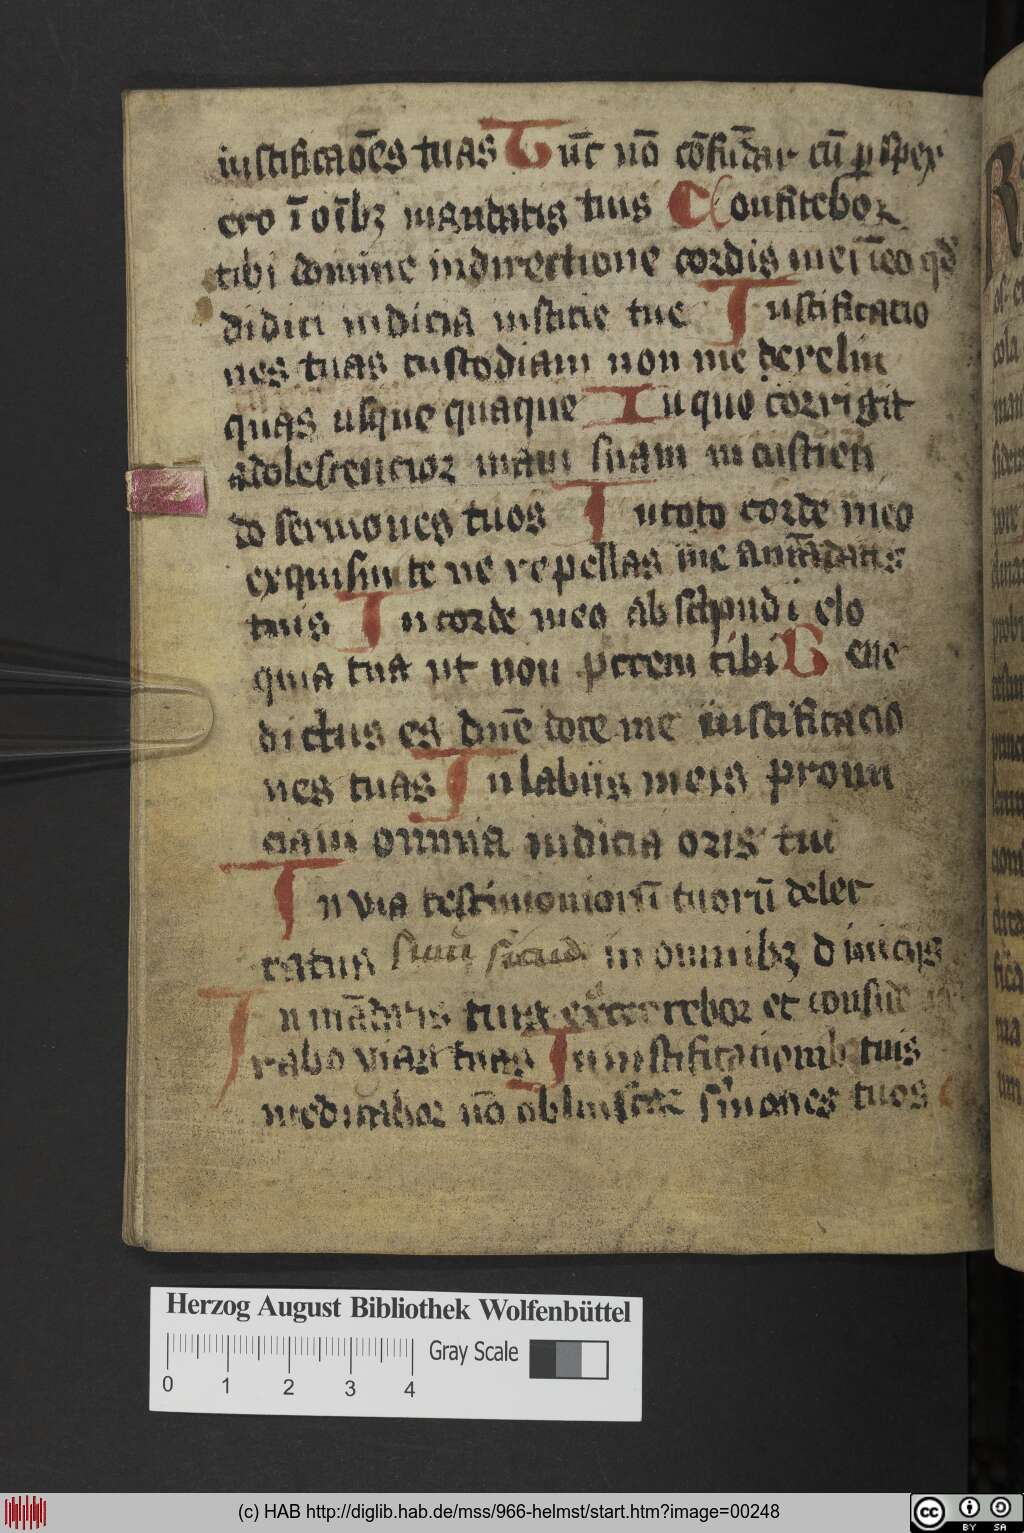 iustificac̄oēs tuas Tūc nō cōfūdar cū ꝑspex
ero ī oībꝫ mandatis tuis Confitebor
tibi domine in directione cordis mei īeo qđ
didici iudicia iusticie tue Iustificatio
nes tuas custodiam non me derelin
quas usque quaque In quo corrigit
adolescencior viam suam in custien
do sermones tuos In toto corde meo
exquisiui te ne repellas me a mādatis
tuis In corde meo abscōpndi elo
quia tua ut non peccem tibi Bene
dictus es dn̄e doce me iustificacio
nes tuas In labiis meis pronun
ciaui omnia iudicia oris tui
In via testimoniorū tuorū delec
tatus sum sicud in omnibꝫ diuiciis
In mādatis tuis exercebor et conside
rabo vias tuas In iustificationibꝫ tuis
meditabor nō obliuiscar s̄mones tuos
Herzog August Bibliothek Wolfenbüttel
Gray Scale
0 1 2 3 4
(c) HAB http://diglib.hab.de/mss/966-helmst/start.htm?image=00248
cc BY SA